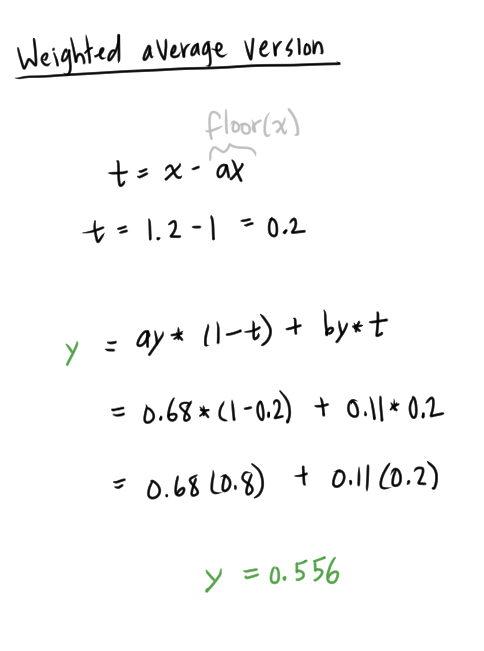 Weighted average version
floor(x)
t = x - ax
t = 1.2 - 1 = 0.2
y = ay * (1-t) + by * t
= 0.68 * (1-0.2) + 0.11 * 0.2
= 0.68 (0.8) + 0.11 (0.2)
y = 0.556